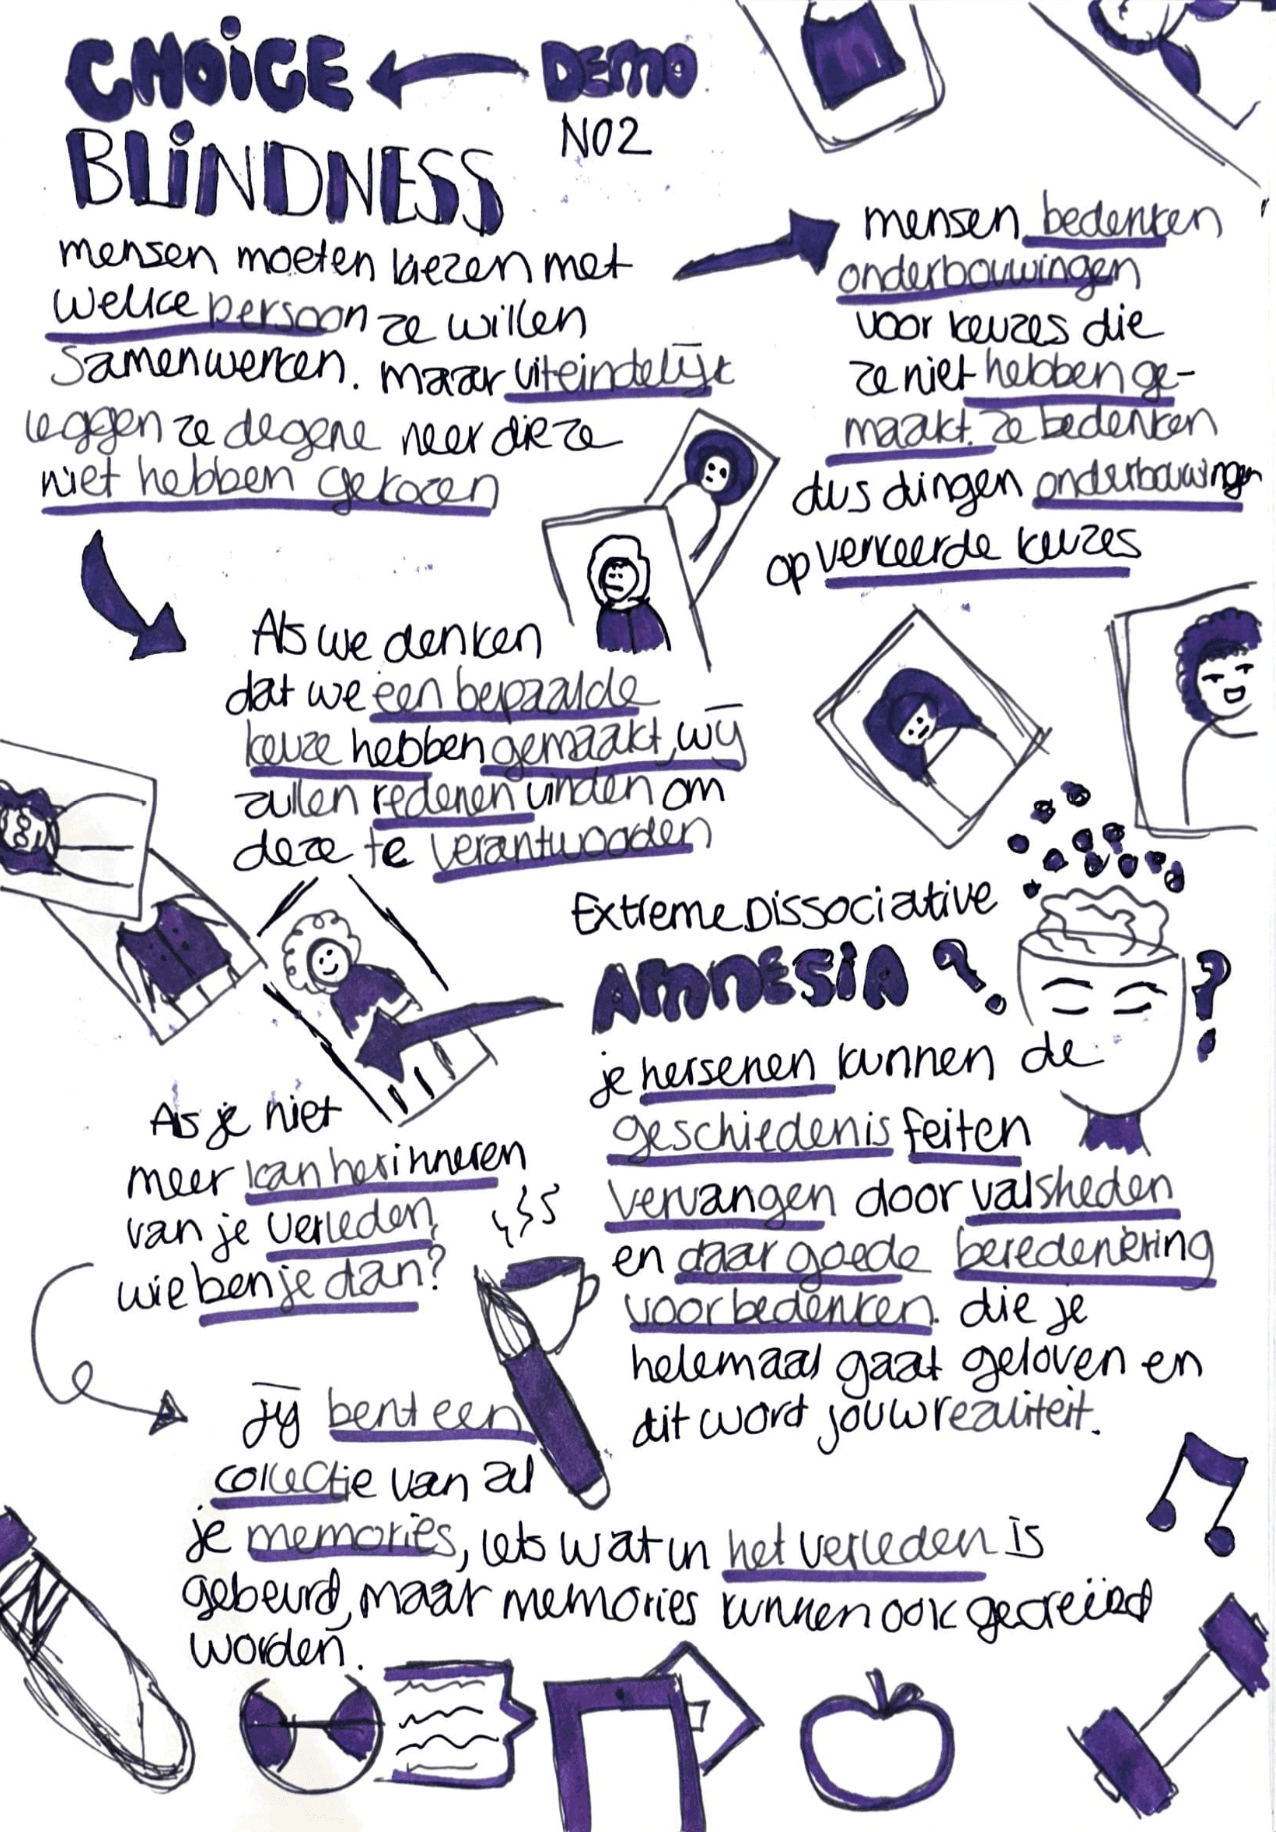 CHOICE
BLINDNESS
DEMO
NO2
mensen moeten kiezen met
welke persoon ze willen
samenwerken. maar uiteindelijk
leggen ze degene neer die ze
niet hebben gekozen
mensen bedenken
onderbouwingen
voor keuzes die
ze niet hebben ge-
maakt. Ze bedenken
dus dingen onderbouwingen
op verkeerde keuzes
Als we denken
dat we een bepaalde
keuze hebben gemaakt, wij
zullen redenen vinden om
deze te verantwooden
Extreme Dissociative
AMNESIA ?
?
je hersenen kunnen de
geschiedenis feiten
vervangen door valsheden
en daar goede beredeniering
voor bedenken. die je
helemaal gaat geloven en
dit word jouw realiteit.
Als je niet
meer kan herinneren
van je verleden,
wie ben je dan?
Jij bent een
collectie van al
je memories, iets wat in het verleden is
gebeurd, maar memories kunnen ook gecreëed
worden.